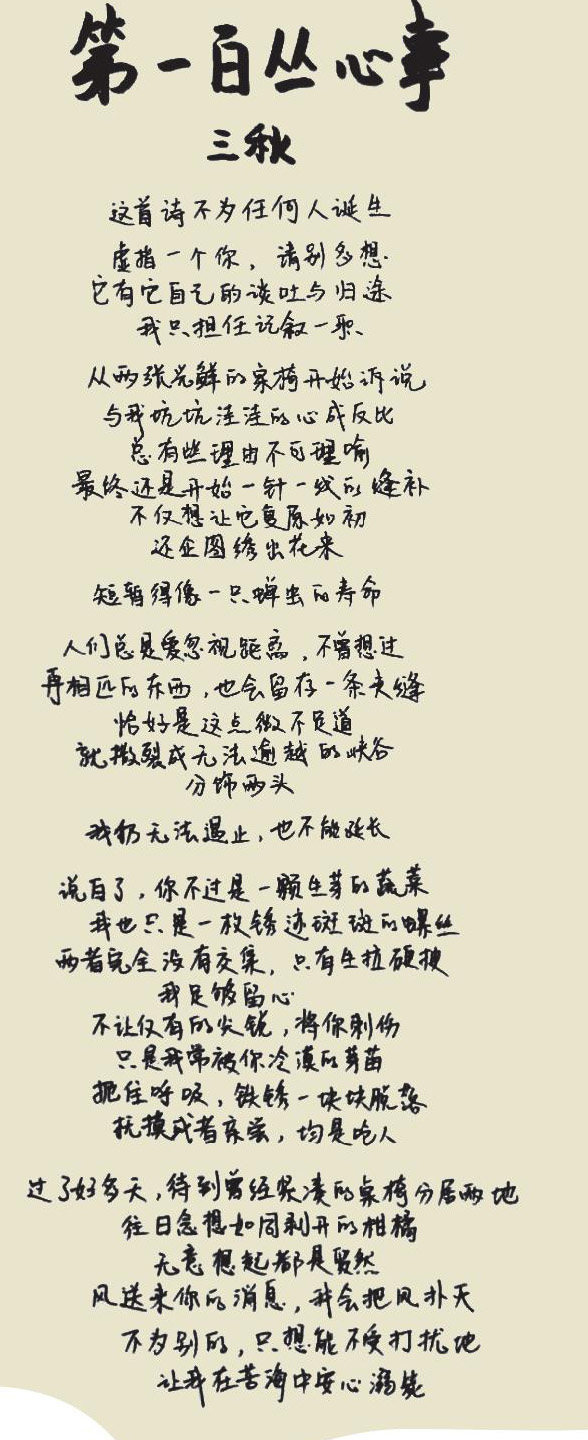 第一百丛心事
三秋
这首诗不为任何人诞生
虚指一个你，请别多想
它有它自己的谈吐与归途
我只担任记叙一职
从两张光鲜的桌椅开始诉说
与我坑坑洼洼的心成反比
总有些理由不可理喻
最终还是开始一针一线的缝补
不仅想让它复原如初
还企图绣出花来
短暂得像一只蝉虫的寿命
人们总是爱忽视距离，不曾想过
再相匹的东西，也会留存一条夹缝
恰好是这点微不足道
就撕裂成无法逾越的峡谷
分饰两头
我仍无法遏止，也不能延长
说白了，你不过是一颗生芽的蔬菜
我也只是一枚锈迹斑斑的螺丝
两者完全没有交集，只有生拉硬拽
我足够留心
不让仅有的尖锐，将你刺伤
只是我常被你冷漠的芽苗
扼住呼吸，铁锈一块块脱落
抚摸或者亲尝，均是呛人
过了好多天，待到曾经紧凑的桌椅分居两地
往日念想如同剥开的柑橘
无意想起都是贸然
风送来你的消息，我会把风扑灭
不为别的，只想能不受打扰地
让我在苦海中安心溺毙